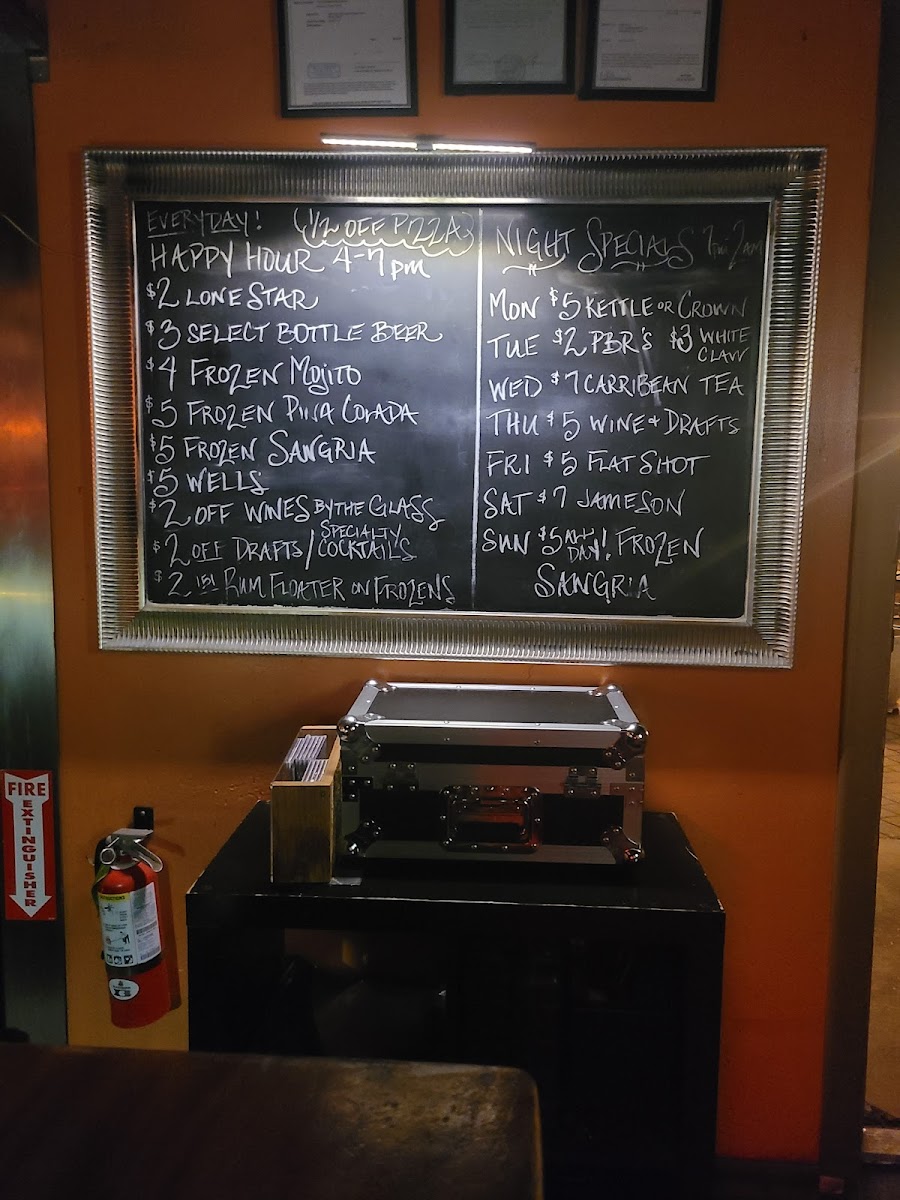 EVERYDAY! 1/2 OFF PIZZA
HAPPY HOUR 4-7pm
$2 LONE STAR
$3 SELECT BOTTLE BEER
$4 FROZEN MOJITO
$5 FROZEN PINA COLADA
$5 FROZEN SANGRIA
$5 WELLS
$2 OFF WINES BY THE GLASS
$2 OFF DRAFTS / SPECIALTY COCKTAILS
$2 151 RUM FLOATER ON FROZENS
NIGHT SPECIALS 7 2AM
MON $5 KETTLE OR CROWN
TUE $2 PBR'S $3 WHITE CLAW
WED $7 CARRIBEAN TEA
THU $5 WINE + DRAFTS
FRI $5 FLAT SHOT
SAT $7 JAMESON
SUN $5 ALL DAY! FROZEN
SANGRIA
FIRE
EXTINGUISHER